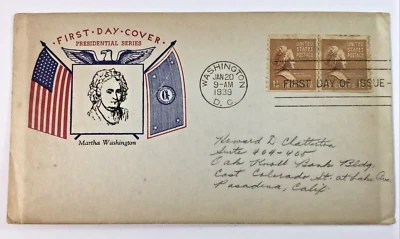 ·FIRST·DAY·COVER·
PRESIDENTIAL SERIES
Martha Washington
WASHINGTON
JAN 20
9-AM
1939
D. C.
UNITED STATES POSTAGE
UNITED STATES POSTAGE
FIRST DAY OF ISSUE
Howard D Chatterton
Suite 404-405
Oak Knoll Bank Bldg.
East Colorado St. at Lake Ave
Pasadena, Calif